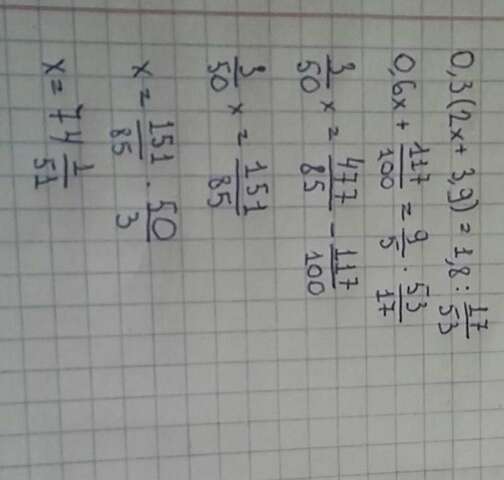 0,3(2x + 3,9) = 1,8 : 17/53
0,6x + 117/100 = 9/5 · 53/17
3/50 x = 477/85 - 117/100
3/50 x = 151/85
x = 151/85 · 50/3
x = 74 1/51